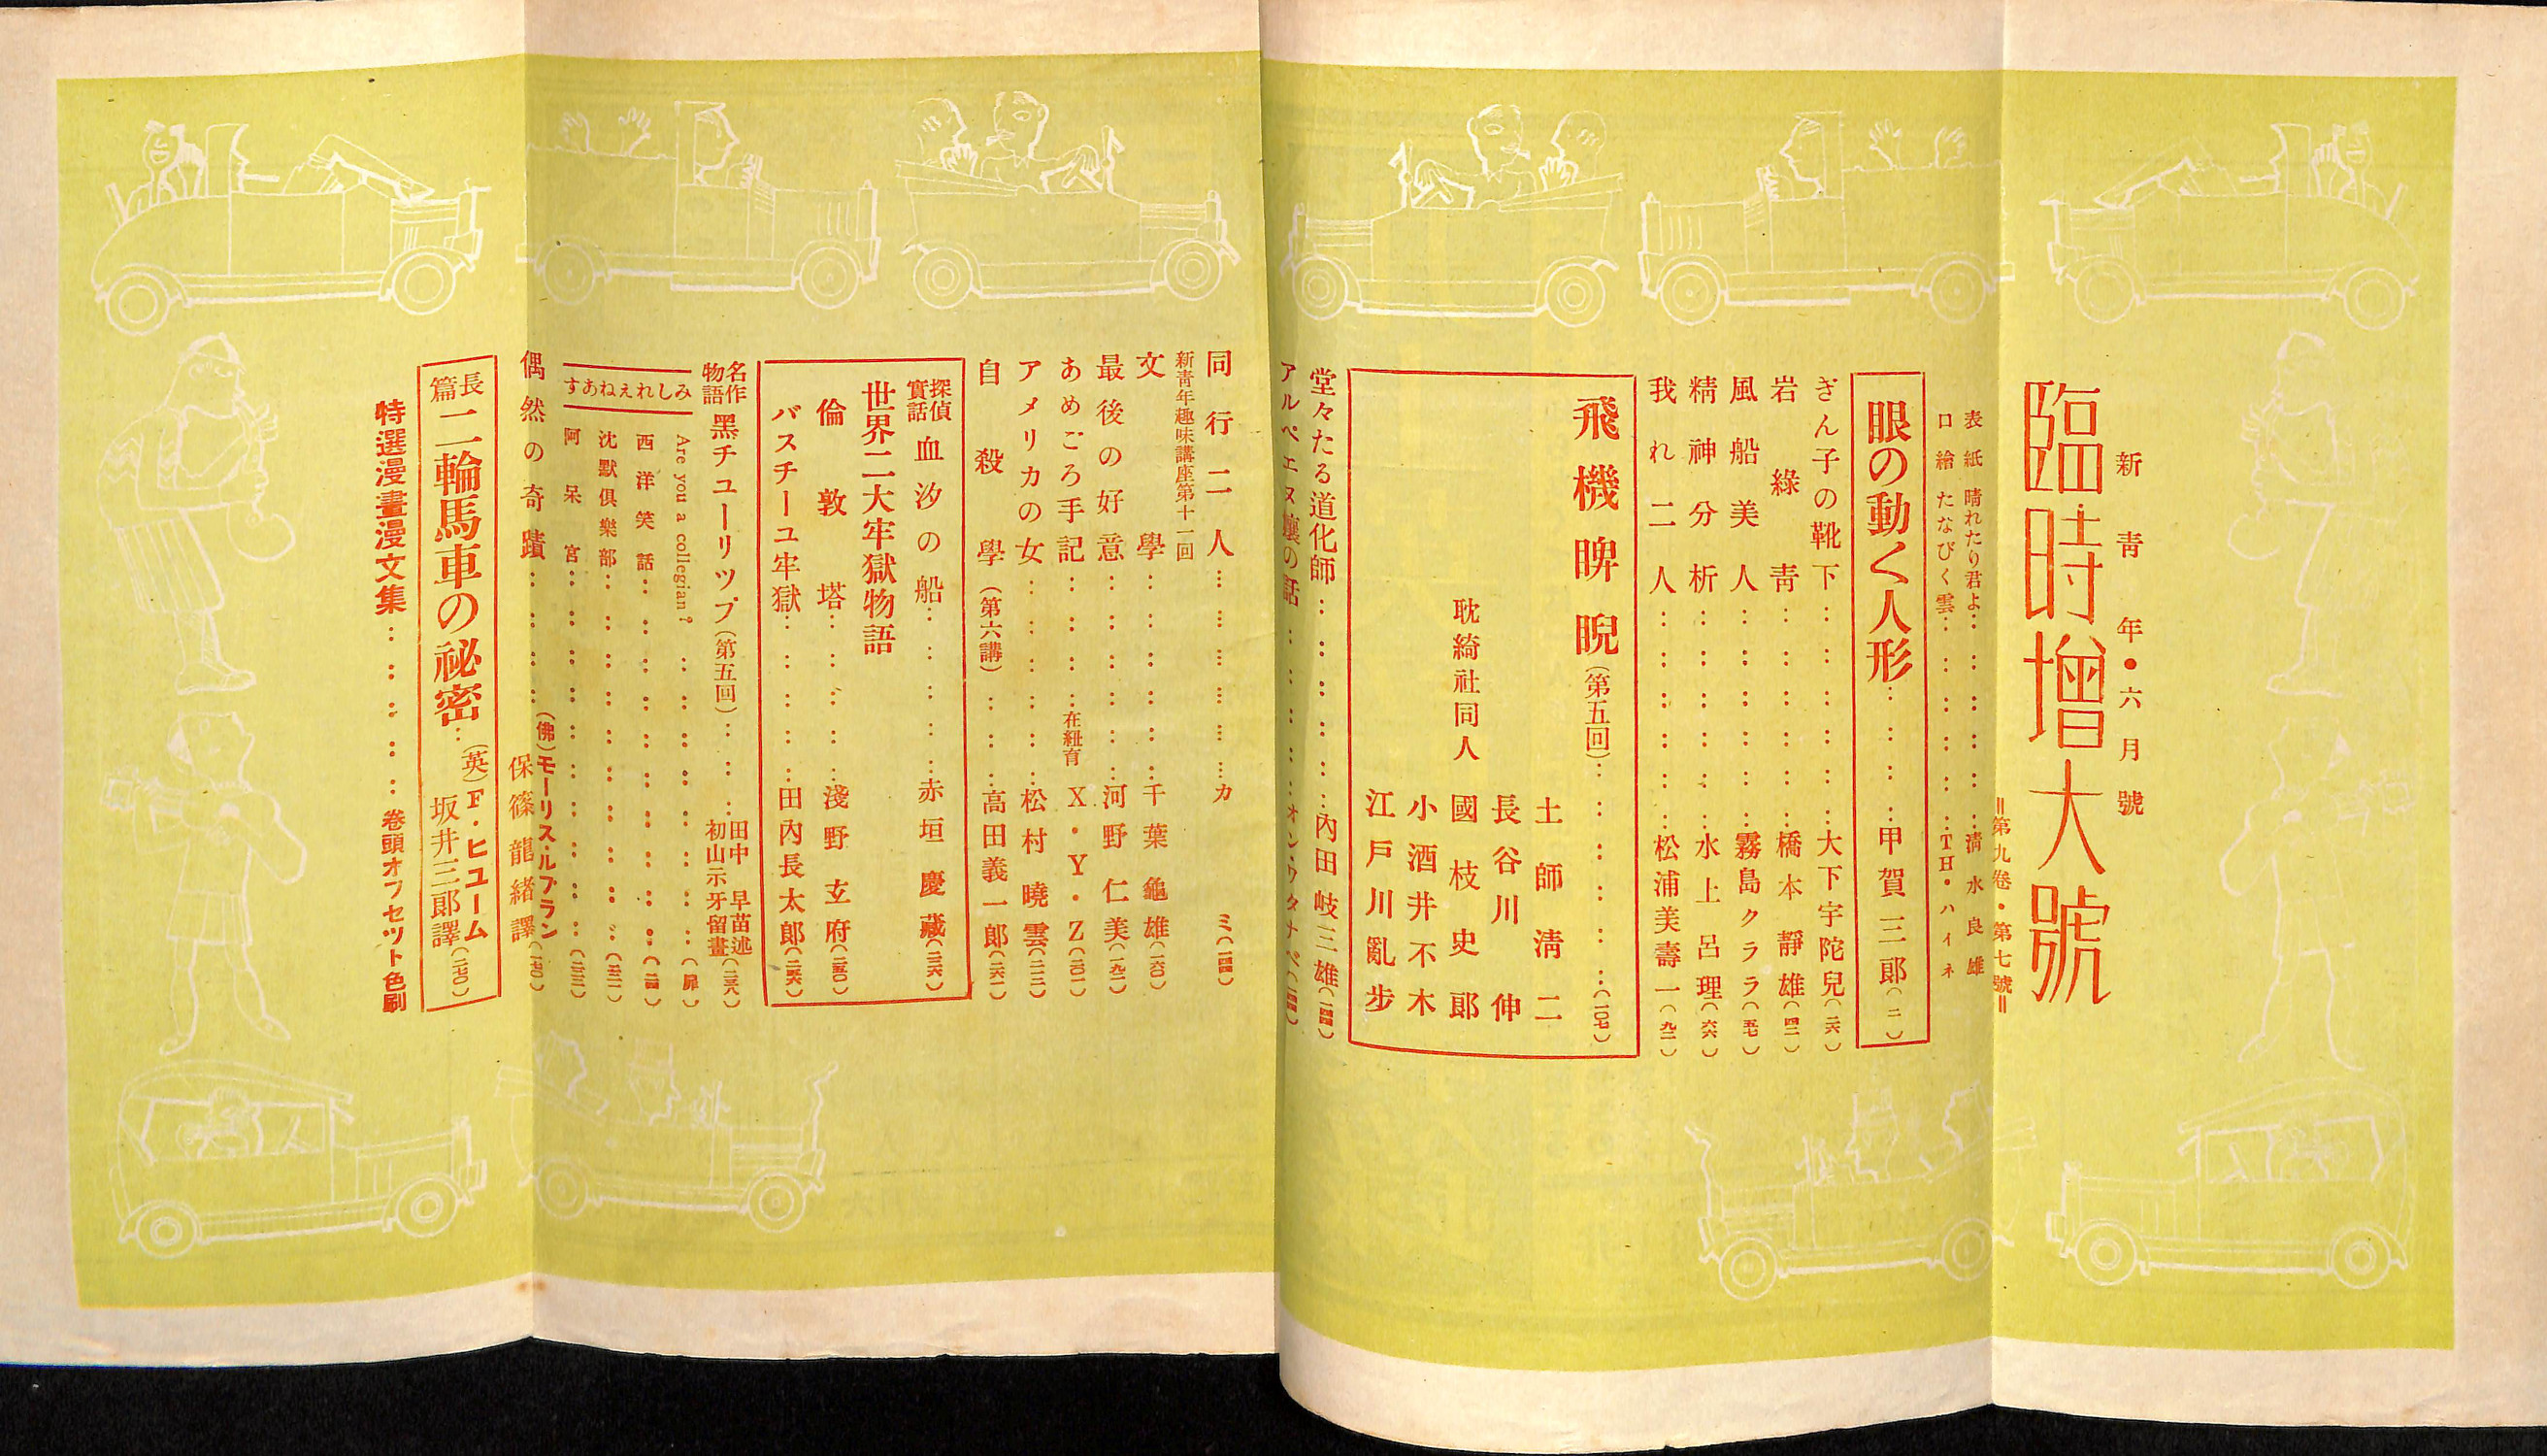 新青年・六月號
臨時增大號
＝第九卷・第七號＝
表紙 晴れたり君よ……淸水良雄
口繪 たなびく雲……TH・ハイネ
眼の動く人形……甲賀三郞(二)
ぎん子の靴下……大下宇陀兒(二六)
岩綠靑……橋本靜雄(四二)
風船美人……霧島クララ(五七)
精神分析……水上呂理(六六)
我れ二人……松浦美壽一(九二)
飛機睥睨(第五回)……(一〇七)
土師淸二
長谷川伸
耽綺社同人 國枝史郞
小酒井不木
江戶川亂步
堂々たる道化師……內田岐三雄(一四四)
アルペエヌ孃の話……オン・ワタナベ(一四四)
同行二人……カミ(一四四)
新靑年趣味講座第十一回
文學……千葉龜雄(一六〇)
最後の好意……河野仁美(一九二)
あめごろ手記……在紐育 X・Y・Z(二〇一)
アメリカの女……松村曉雲(二二二)
自殺學(第六講)……高田義一郞(二六二)
探偵實話 血汐の船……赤垣慶藏(二三六)
世界二大牢獄物語
倫敦塔……淺野玄府(二五〇)
バスチーユ牢獄……田內長太郞(二五六)
名作物語 黑チューリップ(第五回)……田中早苗述 初山示牙留畫(二三八)
みしれえねあす
Are you a collegian?……(扉)
西洋笑話……(二四)
沈默俱樂部……(二三二)
阿呆宮……(二三二)
偶然の奇蹟……(佛)モーリス・ルブラン 保篠龍緖譯(一七〇)
長篇 二輪馬車の祕密……(英)F・ヒユーム 坂井三郞譯(二七〇)
特選漫畫漫文集……卷頭オフセツト色刷